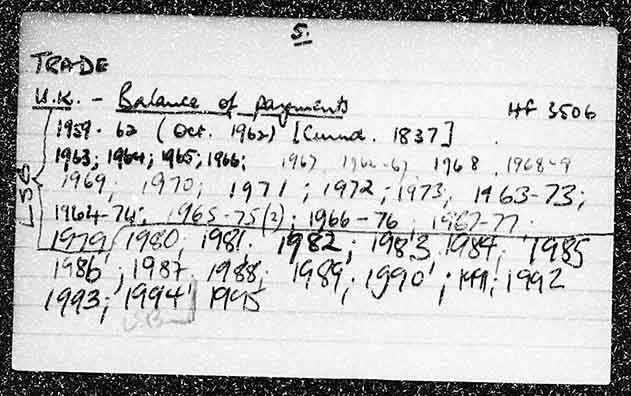 5.
TRADE
U.K. - Balance of payments HF 3506
1959-62 (Oct. 1962) [Cmnd. 1837]
1963; 1964; 1965; 1966; 1967 1966-67 1968, 1968-9
1969; 1970; 1971; 1972; 1973; 1963-73;
1964-74; 1965-75(2); 1966-76; 1967-77.
1979 1980; 1981; 1982; 1983 1984; 1985
1986; 1987 1988; 1989; 1990; 1991; 1992
1993; 1994 1995